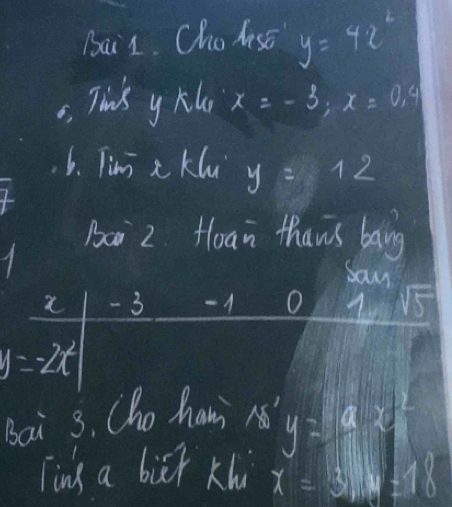 Bài 1. Cho hsố y = 4x²
a, Tính y khi x = -3; x = 0,4
b. Tìm x khi y = 12
7
Bài 2. Hoàn thành bảng
1
sau
x -3 -1 0 1 √5
y = -2x²
Bài 3. Cho hàm số y = ax²
Tính a biết khi x = 3, y = 18